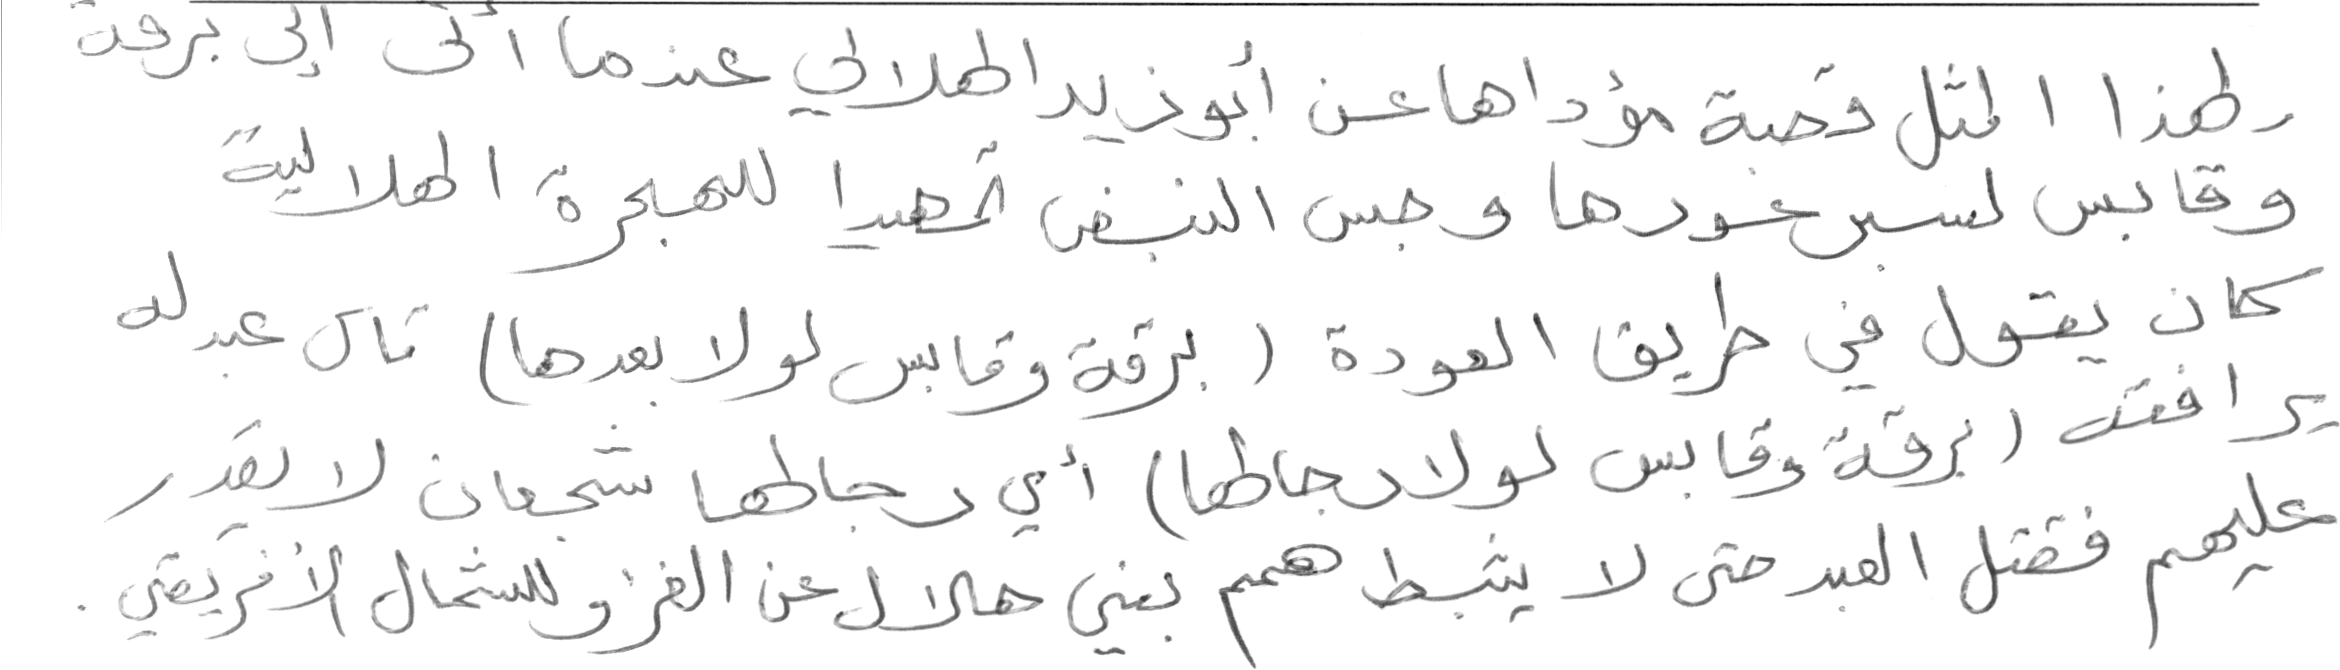 ولهذا المثل قصة مؤداها عن أبو زيد الهلالي عندما أتى إلى برقة
وقابس لسبر غورها وجس النبض تمهيدا للهجرة الهلالية
كان يقول في طريق العودة (برقة وقابس لولا بعدها) قال عبد له
يرافقه (برقة وقابس لولا رجالها) أي رجالها شجعان لا يقدر
عليهم فقتل العبد حتى لا يثبط همم بني هلال عن الغزو للشمال الأفريقي .